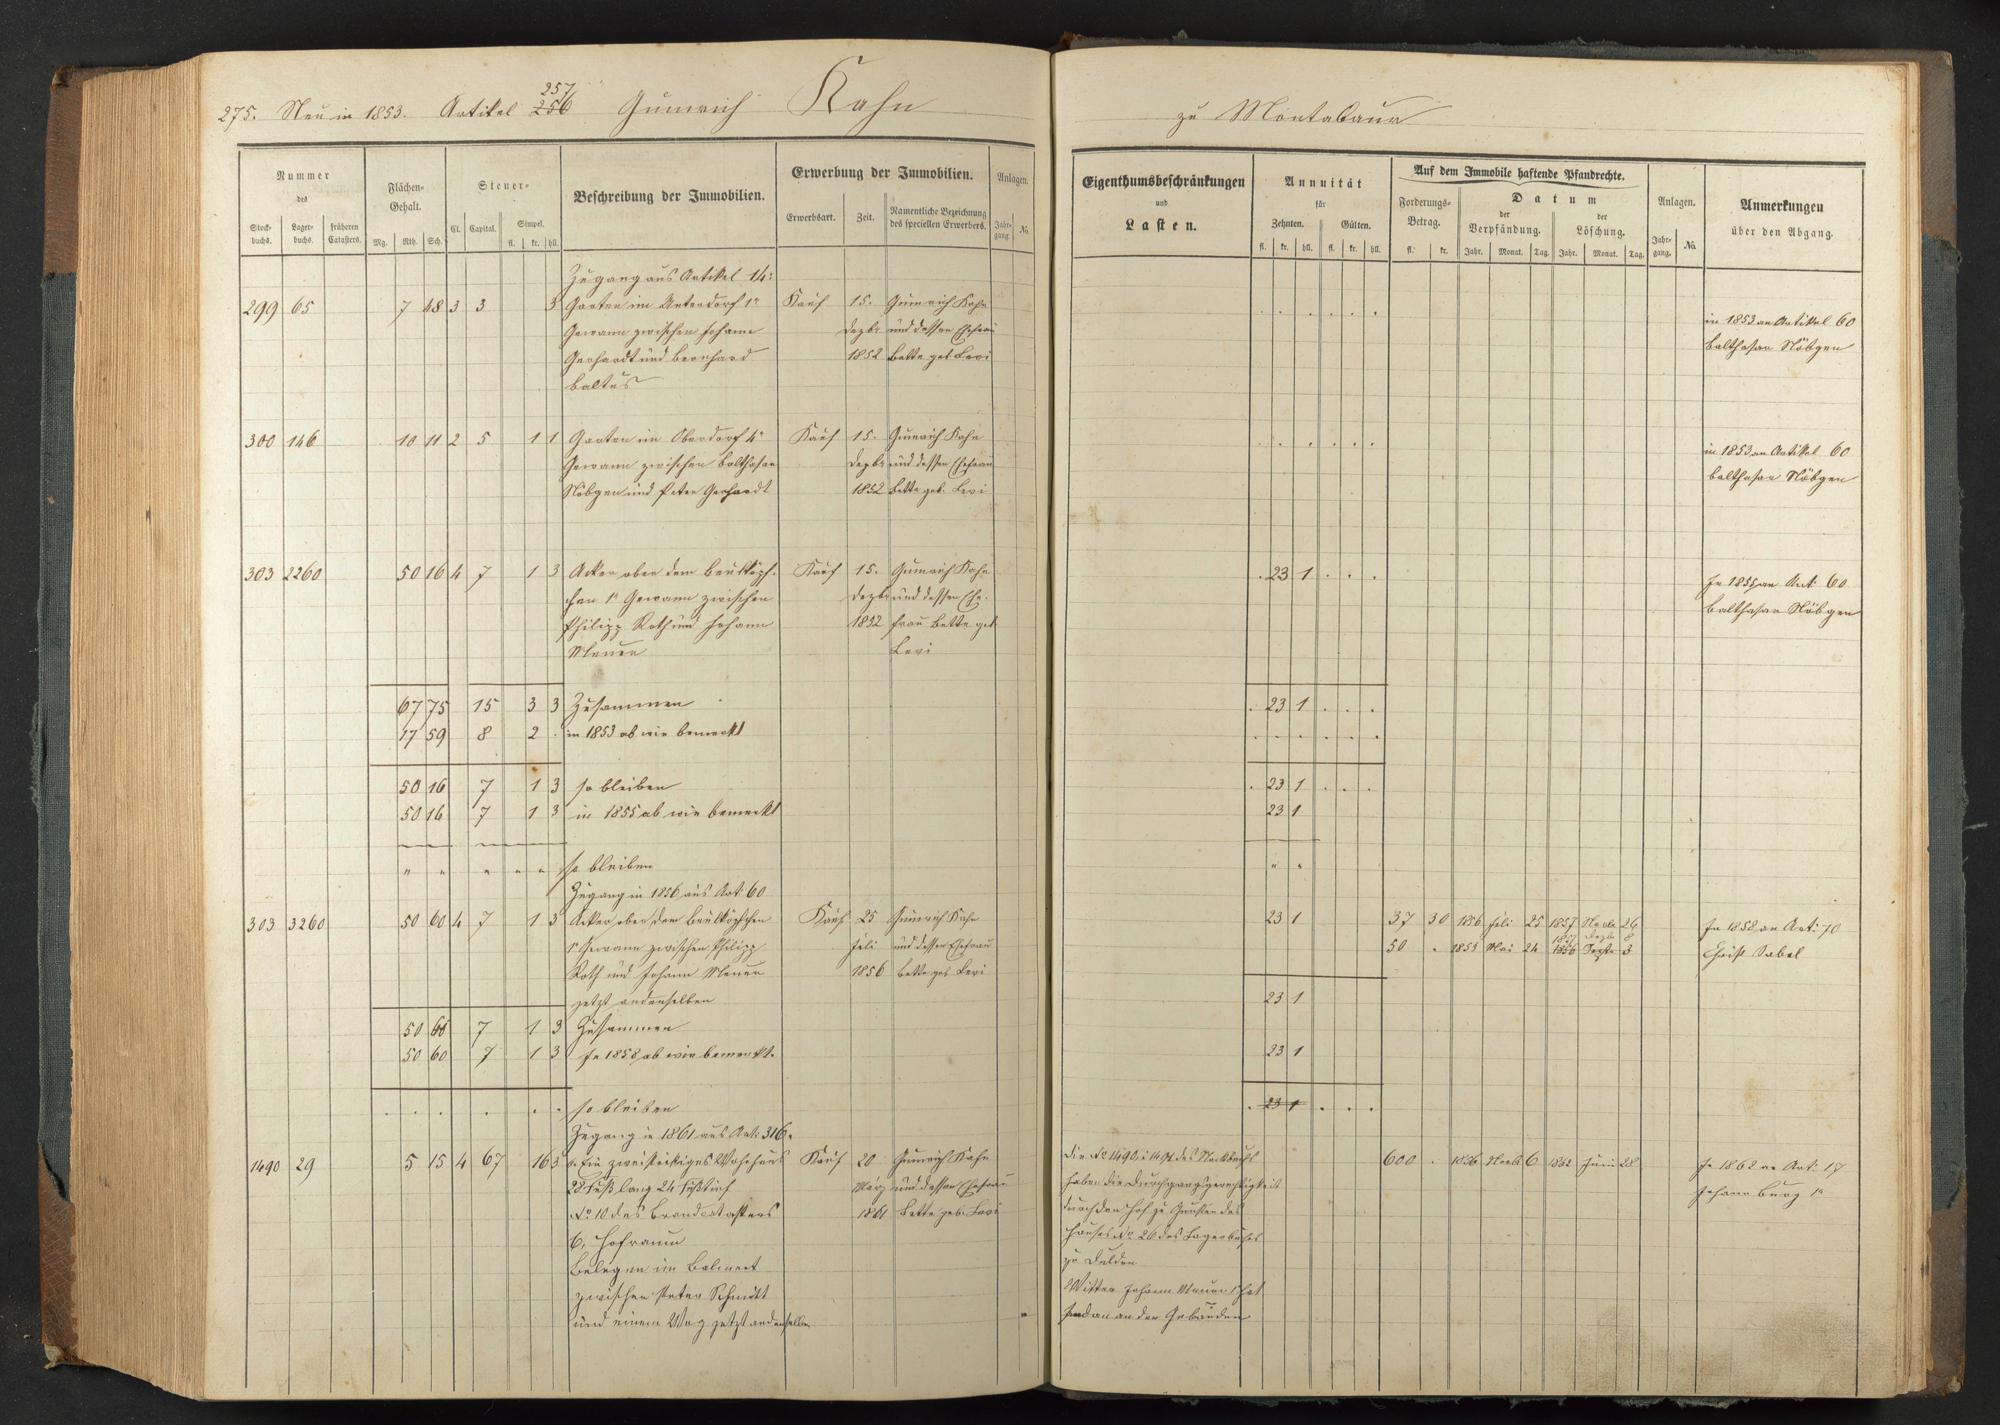 275. Neu in 1853. Artikel 256 257 Gumrich Kahn
Nummer
des
Stock-
buchs.
Lager-
buchs.
früheren
Catasters.
Flächen-
Gehalt.
Mg. Rth. Sch.
Steuer-
Cl. Capital. Simpel.
fl. kr. hll.
Beschreibung der Immobilien.
Erwerbung der Immobilien.
Erwerbsart. Zeit. Namentliche Bezeichnung
des speciellen Erwerbers.
Anlagen.
Jahr-
gang. No.
Zugang aus Artikel 14:
299 65 7 48 3 3 3 Garten im Unterdorf 1r Kauf 15. Gumrich Kahn
Gewann zwischen Johann Dezbr und dessen Ehefrau
Gerhardt und Bernhard 1852 Bette geb. Levi
Baltus
300 146 10 11 2 5 1 1 Garten im Oberdorf 4r Kauf 15. Gumrich Kahn
Gewann zwischen Balthasar Dezbr und dessen Ehefrau
Nöbgen und Peter Gerhardt 1852 Bette geb. Levi
303 2260 50 16 4 7 1 3 Acker ober dem Beulköpf- Kauf 15. Gumrich Kahn
chen 1r Gewann zwischen Dezbr und dessen Ehe-
Philipp Roth und Johann 1852 frau Bette geb
Meurer Levi
67 75 15 3 3 Zusammen
17 59 8 2 . in 1853 ab wie bemerkt
50 16 7 1 3 so bleiben
50 16 7 1 3 in 1855 ab wie bemerkt
" " " " " so bleiben
Zugang in 1856 aus Art. 60
303 3260 50 60 4 7 1 3 Acker ober dem Beulköpfchen Kauf 25 Gumrich Kahn
1r Gewann zwischen Philipp Juli und dessen Ehefrau
Roth und Johann Meurer 1856 Bette geb. Levi
jetzt andenselben
50 60 7 1 3 Zusammen
50 60 7 1 3 In 1858 ab wie bemerkt.
. . . . . . so bleiben
Zugang in 1861 aus Art: 316.
1490 29 5 15 4 67 16 3 a. Ein zweistöckiges Wohnhaus Kauf 20 Gumrich Kahn
28 Fuß lang 24 Fuß tief März und dessen Ehefrau
No 10 des Brandcatasters 1861 Bette geb. Levi
b, Hofraum
Belegen im
zwischen Peter Schmidt
und einem Weg jetzt andenselben
zu Montabaur
Eigenthumsbeschränkungen
und
Lasten.
Annuität
für
Zehnten. Gülten.
fl. kr. hll. fl. kr. hll.
Auf dem Immobile haftende Pfandrechte.
Forderungs-
Betrag.
fl. kr.
Datum
der
Verpfändung.
der
Löschung.
Jahr. Monat. Tag. Jahr. Monat. Tag.
Anlagen.
Jahr-
gang. No.
Anmerkungen
über den Abgang.
. . . . . . in 1853 an Artikel 60
Balthasar Nöbgen
. . . . . . in 1853 an Artikel 60
Balthasar Nöbgen
. 23 1 . . . In 1855 an Art: 60
Balthasar Nöbgen
. 23 1 . . .
. . . . . .
. 23 1 . . .
23 1
" "
23 1 37 30 1856 Juli 25 1857 26 In 1858 an Art: 70
50 . 1855 Mai 24 1856 3 1857 Dezbr 8 Christ Sabel
23 1
23 1
. 23 1 . . .
Die No 1490 : 1491 des Stockbuchs 600 . 1856 Novb 6 1862 Juni 28 In 1862 an Art: 17
haben die Durchgangsgerechtigkeit Johann Burg 1r
durch den Hof zu Gunsten des
Hauses No 26 des Lagerbuches
zu dulden
Wittwe Johann Meurer hat
an den Gebäuden